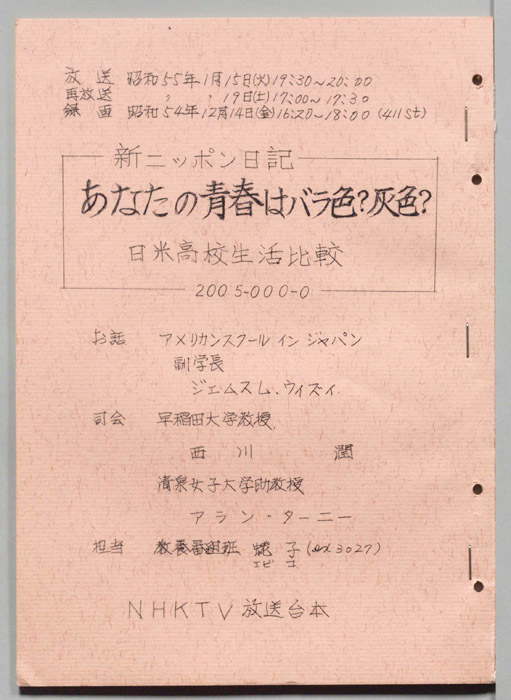 放送 昭和55年1月15日(火)19:30~20:00
再放送 〃 〃 19日(土)17:00~17:30
録画 昭和54年12月14日(金)16:20~18:00 (411St)
新ニッポン日記
あなたの青春はバラ色?灰色?
日米高校生活比較
2005-000-0
お話 アメリカンスクール イン ジャパン
副学長
ジェムスM.ウィズィ
司会 早稲田大学教授
西川 潤
清泉女子大学助教授
アラン・ターニー
担当 教養番組班 子(ex3027)
エビ コ
NHKTV放送台本